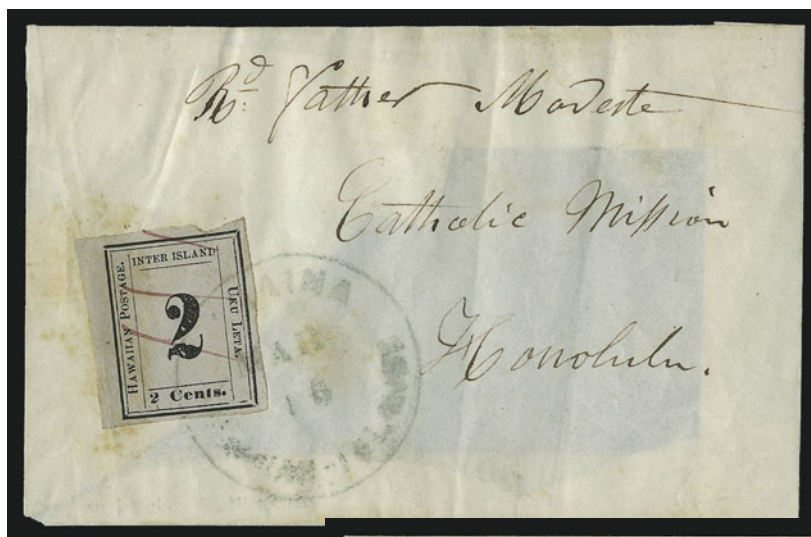 Rd. Father Modeste
Catholic Mission
Honolulu.
INTER ISLAND
HAWAIIAN POSTAGE.
2
UKU LETA.
2 Cents.